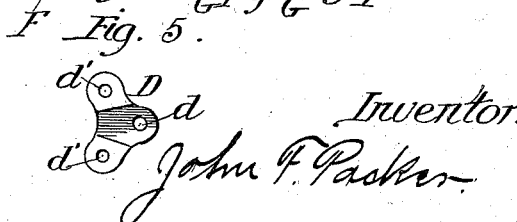 F Fig. 5.
d' D
d
Inventor.
d'
John F. Packer.